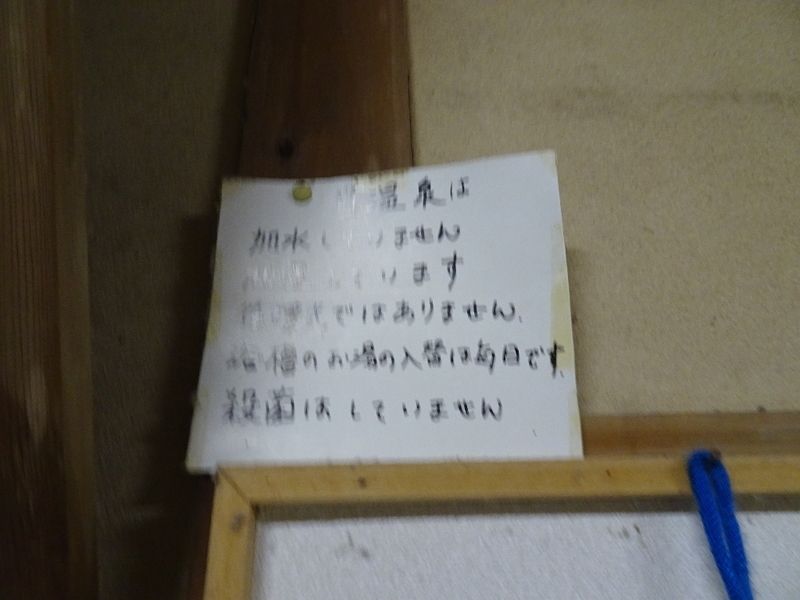 温泉は
加水していません
います
ではありません。
浴槽のお湯の入替は毎日です。
殺菌はしていません